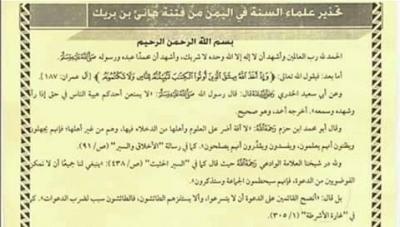 تحذير علماء السنة في اليمن من فتنة هانئ بن بريك
بسم الله الرحمن الرحيم
الحمد لله رب العالمين وأشهد أن لا إله إلا الله وحده لا شريك، وأشهد أن محمدًا عبده ورسوله ﷺ
أما بعد: فيقول الله تعالى: ﴿وَإِذْ أَخَذَ اللَّهُ مِيثَاقَ الَّذِينَ أُوتُوا الْكِتَابَ لَتُبَيِّنُنَّهُ لِلنَّاسِ وَلَا تَكْتُمُونَهُ﴾ [آل عمران: ١٨٧]
وعن أبي سعيد الخدري رضي الله عنه قال: قال رسول الله ﷺ: «لا يمنعن أحدكم هيبة الناس في حق إذا رآه
وشهده وسمعه». أخرجه أحمد، وهو صحيح
وقال أبو محمد ابن حزم رحمه الله: «لا آفة أضر على العلوم وأهلها من الدخلاء فيها، وهم من غير أهلها؛ فإنهم يجهلون
ويظنون أنهم يعلمون، ويفسدون ويقدرون أنهم يصلحون». كما في رسالة "الأخلاق والسير" (ص/٩١)
ولله در شيخنا العلامة الوادعي رحمه الله حيث قال كما في "السير الحثيث" (ص/٤٣٨): «ينبغي لنا جميعًا أن لا نمكن
الفوضويين من الدعوة، فإنهم سيحطمون الجماعة وستذكرون».
بل قال: «أنصح القائمين على الدعوة أن لا يتسرعوا، وألا يستفزهم الطائشون، فالطائشون سبب لضرب الدعوات». كما
في "غارة الأشرطة" (١/ ٣٠٥)